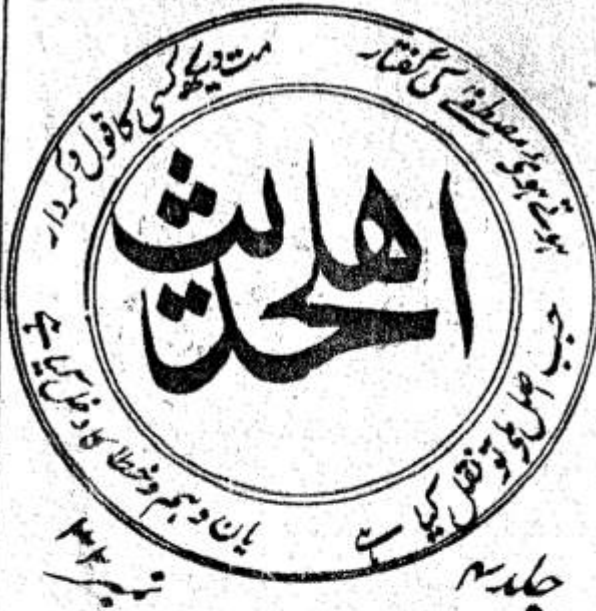 ہوتے ہوئے مصطفے کی گفتار
مت دیکھ کسی کا قول و کردار
جب اصل ملے تو نقل کیا ہے
یان وہم و خطا کا دخل کیا ہے
اهلحديث
جلد ۴
نمبر ۳۲